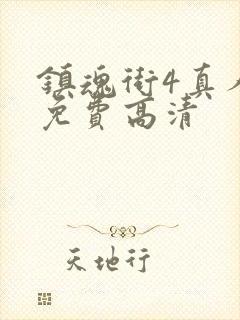 鎮魂街4真人
免費高清
天地行